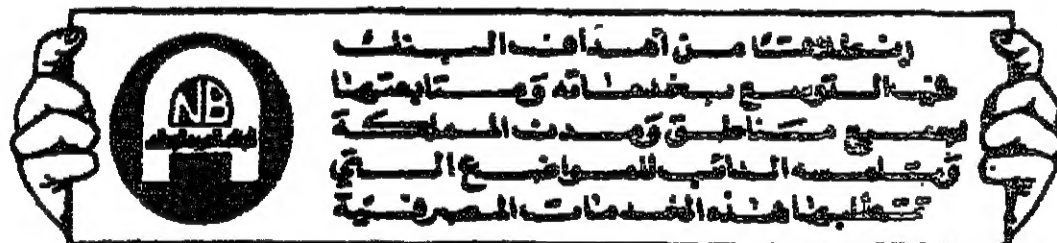 NB
إنطلاقتا من أهداف البنك
في التوسع بخدماته ومتابعتها
جميع مناطق ومدن المملكة
الثاقب للمواضع التي
تتطلبها هذه الخدمات المصرفية